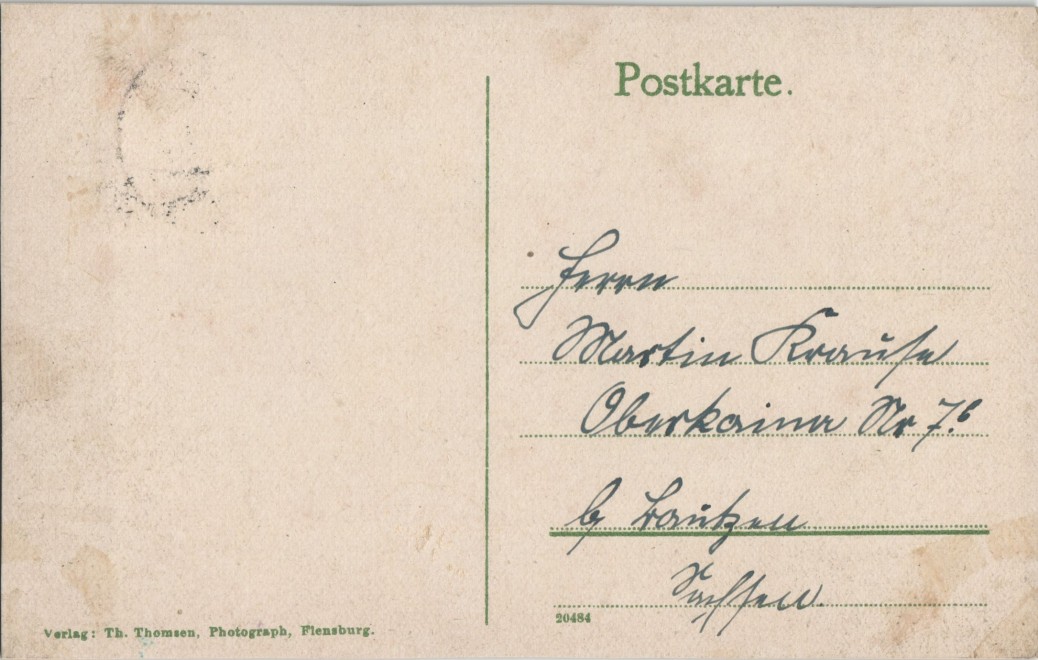 Postkarte.
Herrn
Martin Krause
Oberkaina Nr 7.b
b/ Bautzen
Sachsen.
20484
Verlag: Th. Thomsen, Photograph, Flensburg.